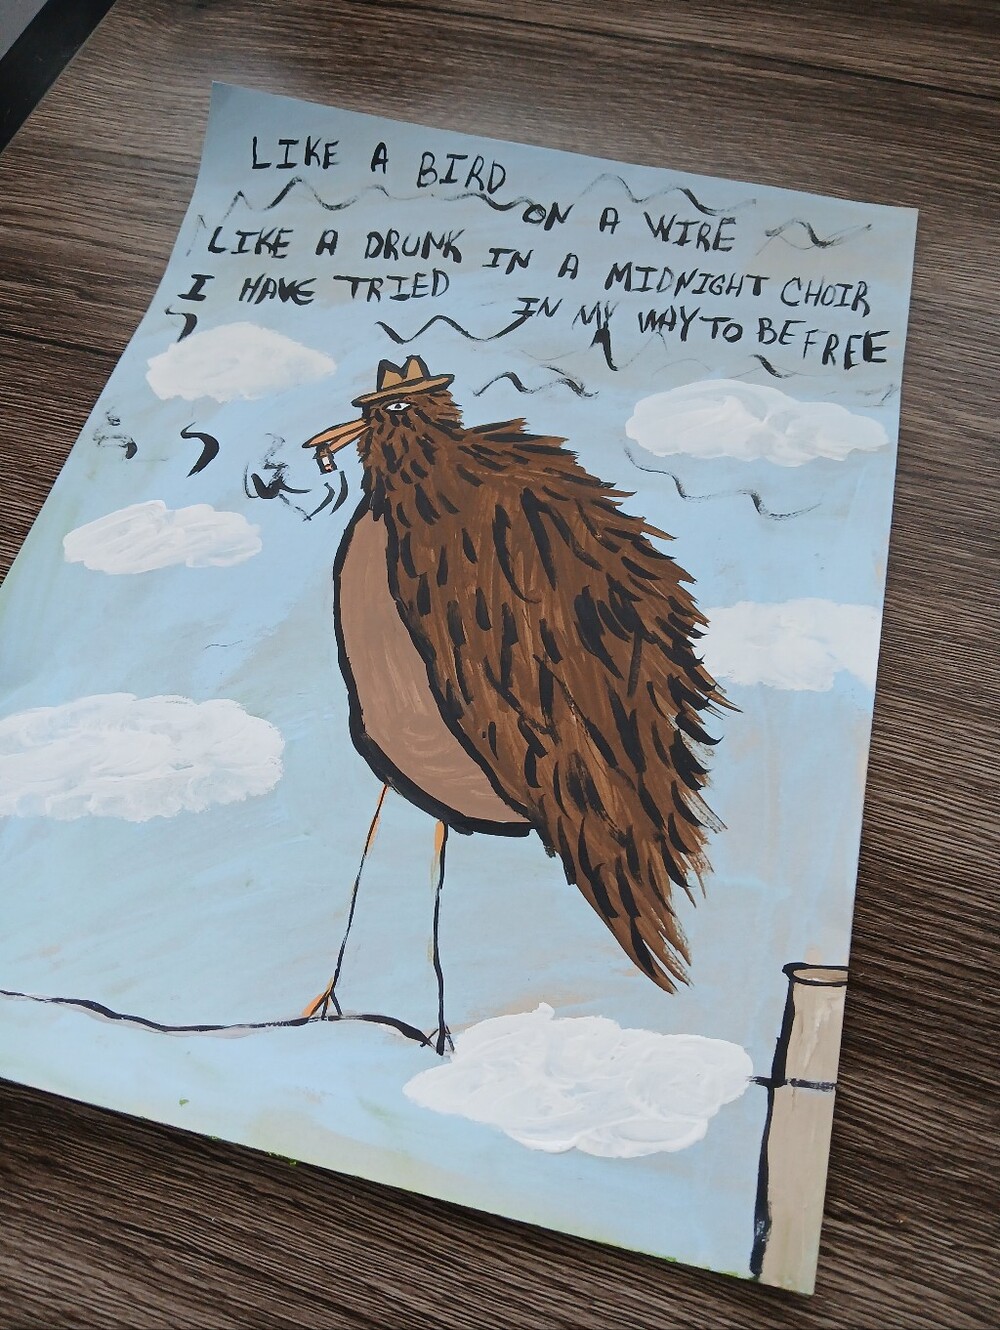 LIKE A BIRD
ON A WIRE
LIKE A DRUNK IN A MIDNIGHT CHOIR
I HAVE TRIED IN MY WAY TO BE FREE